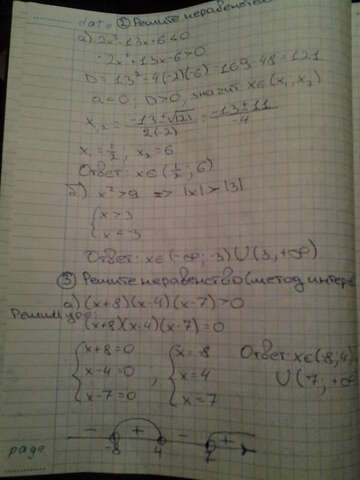 ② Решите неравенство
а) 2x² - 13x - 6 < 0
- 2x² + 13x - 6 > 0
D = 13² - 4(-2)(-6) = 169 - 48 = 121
a < 0; D > 0, значит x ∈ (x₁, x₂)
x₁,₂ = (-13 ± √121) / (2(-2)) = (-13 ± 11) / -4
x₁ = 1/2, x₂ = 6
Ответ: x ∈ (1/2; 6)
б) x² > 9 => |x| > |3|
{ x > 3
x < -3
Ответ: x ∈ (-∞; -3) ∪ (3, +∞)
③ Решите неравенство (метод интерв
а) (x+8)(x-4)(x-7) > 0
(x+8)(x-4)(x-7) = 0
{ x+8 = 0 , { x = -8
x-4 = 0 x = 4
x-7 = 0 x = 7
Ответ x ∈ (-8, 4)
∪ (7, +∞
- + - +
-8 4 7
page